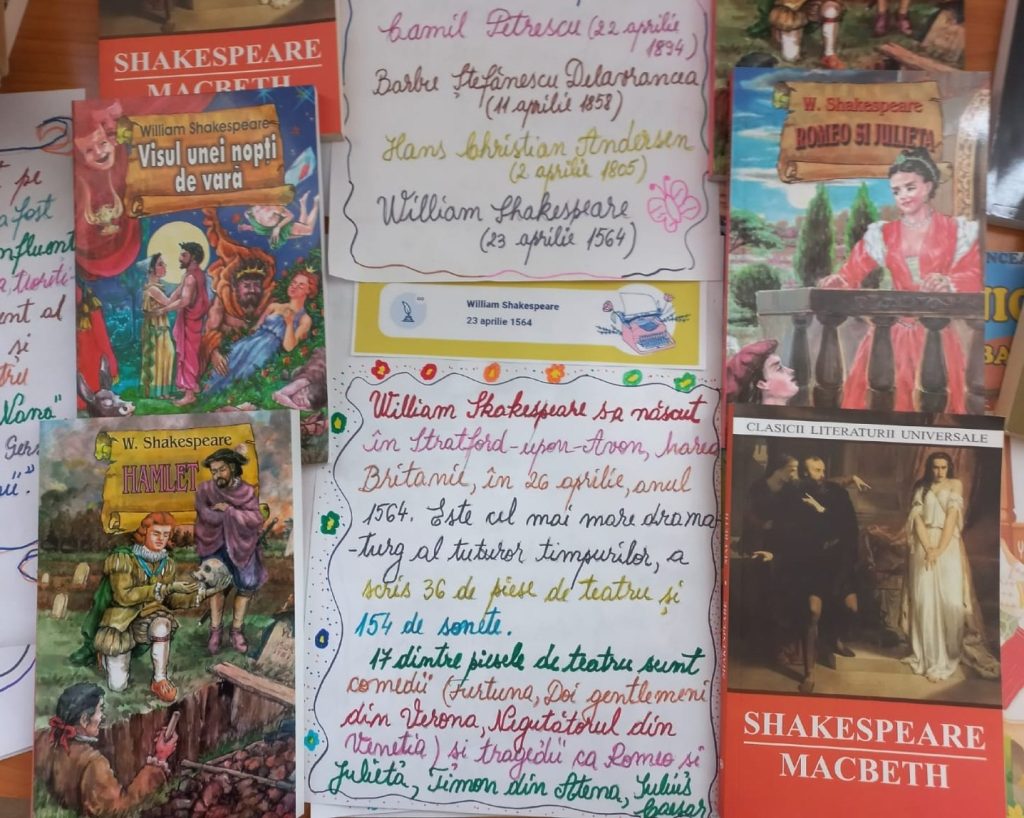 SHAKESPEARE
MACBETH
Camil Petrescu (22 aprilie
1894)
Barbu Ștefănescu Delavrancea
(11 aprilie 1858)
Hans Christian Andersen
(2 aprilie 1805)
William Shakespeare
(23 aprilie 1564)
William Shakespeare
Visul unei nopți
de vară
W. Shakespeare
ROMEO SI JULIETA
pe
fost
influent
ent al
și
tru
Nana"
William Shakespeare
23 aprilie 1564
W. Shakespeare
HAMLET
William Shakespeare s-a născut
în Stratford-upon-Avon, Marea
Britanie, în 26 aprilie, anul
1564. Este cel mai mare drama-
-turg al tuturor timpurilor, a
scris 36 de piese de teatru și
154 de sonete.
17 dintre piesele de teatru sunt
comedii (Furtuna, Doi gentlemeni
din Verona, Neguțătorul din
Veneția) și tragedii ca Romeo si
Julieta, Timon din Atena, Iulius
Caesar
CLASICII LITERATURII UNIVERSALE
SHAKESPEARE MACBETH
SHAKESPEARE
MACBETH